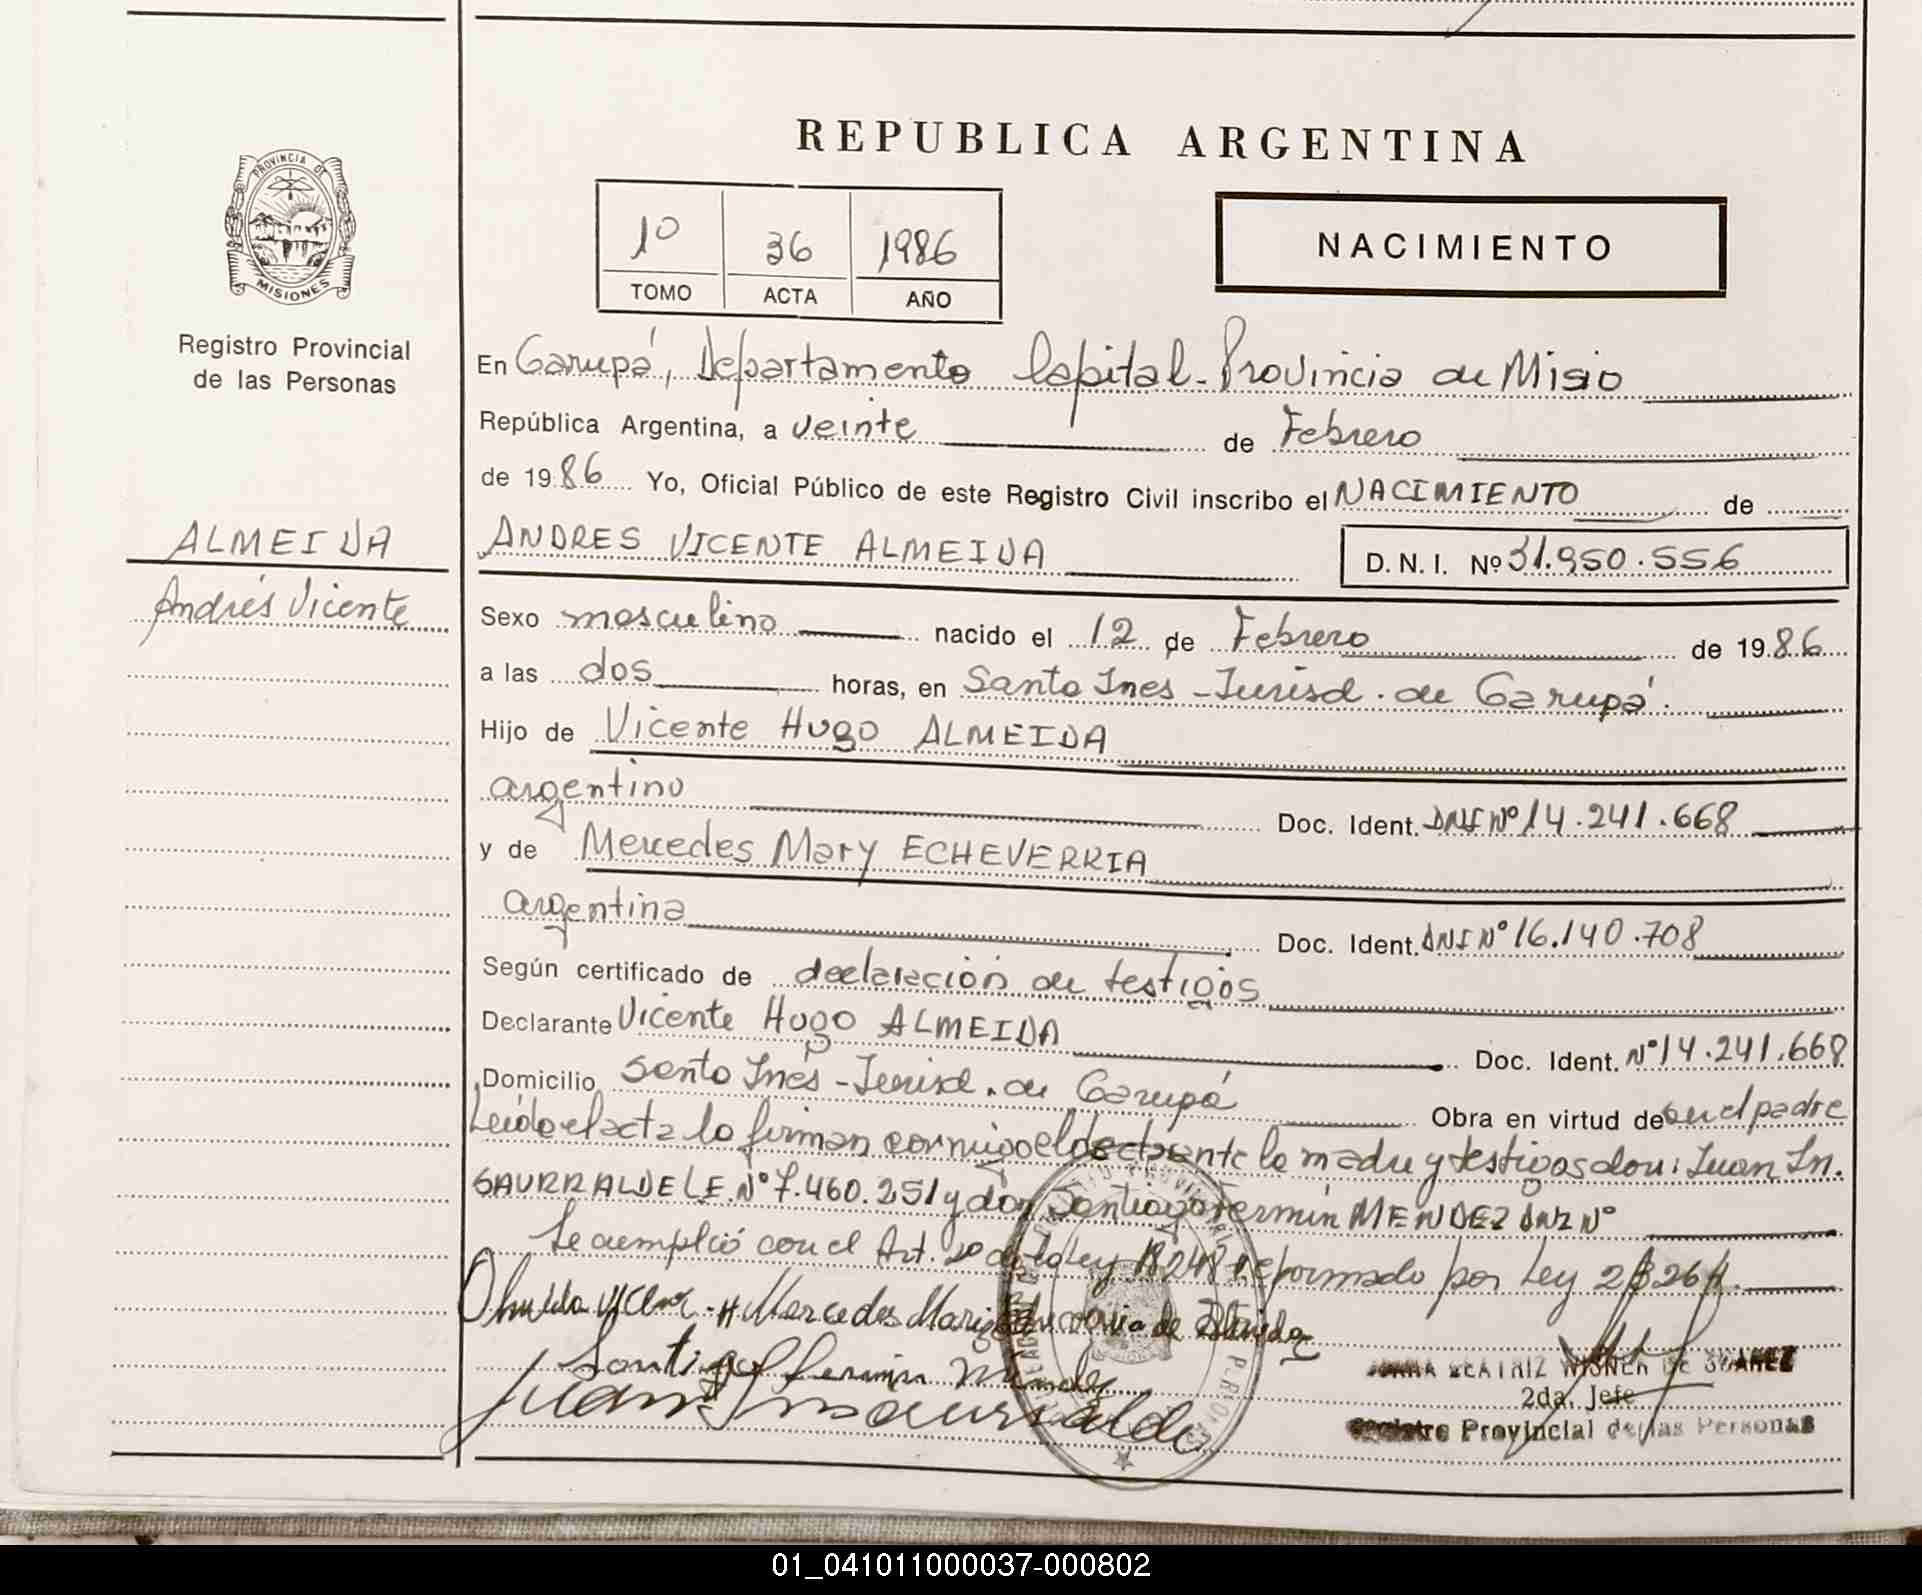 REPUBLICA ARGENTINA
PROVINCIA DE
MISIONES
1º 36 1986
TOMO ACTA AÑO
NACIMIENTO
Registro Provincial
de las Personas
En Garupá, Departamento Capital - Provincia de Misio
República Argentina, a veinte de Febrero
de 1986 Yo, Oficial Público de este Registro Civil inscribo el NACIMIENTO de
ALMEIDA
Andrés Vicente
ANDRES VICENTE ALMEIDA D. N. I. Nº 31.950.556
Sexo masculino nacido el 12 de Febrero de 1986
a las dos horas, en Santa Ines - Jurisd. de Garupá.
Hijo de Vicente Hugo ALMEIDA
argentino Doc. Ident. DNI Nº 14.241.668
y de Mercedes Mary ECHEVERRIA
argentina Doc. Ident. DNI Nº 16.140.708
Según certificado de declaración de testigos
Declarante Vicente Hugo ALMEIDA Doc. Ident. Nº 14.241.668
Domicilio Santa Inés - Jurisd. de Garupá Obra en virtud de ser el padre
Leído el acta la firman conmigo el declarante la madre y testigos don: Juan In.
SAURRALDE LE. Nº 7.460.251 y don Santiago Fermín MENDEZ DNI Nº
Se cumplió con el Art. 2º de la Ley 18248 reformado por Ley 23264.
Santiago Fermin Mendez
BEATRIZ WISNER DE SUAREZ
2da. Jefe
Registro Provincial de las Personas
01_041011000037-000802